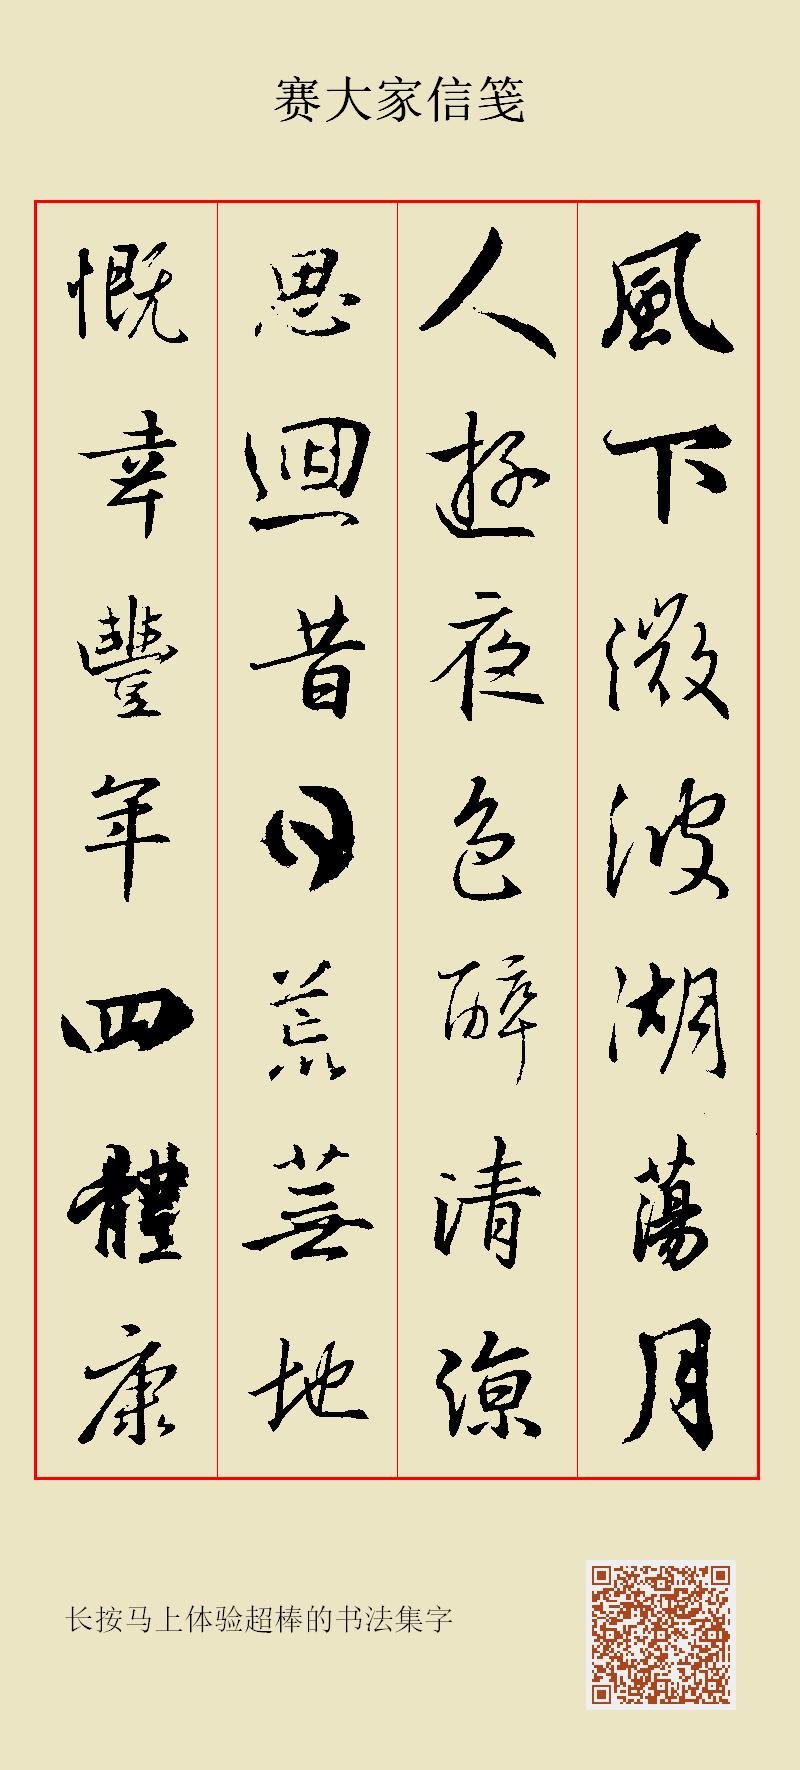 赛大家信笺
風下微波湖蕩月
人遊夜色醉清涼
思迴昔日荒蕪地
慨幸豐年四體康
长按马上体验超棒的书法集字